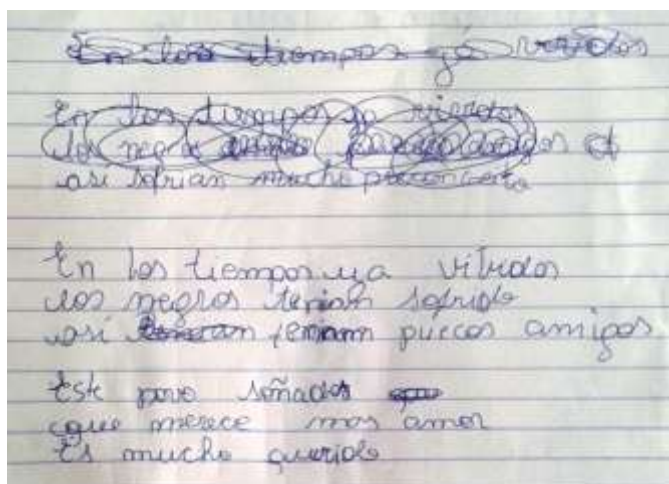 En los tiempos ya
En los tiempos ya
los negros amigos
asi sofrian mucho
En los tiempos ya vividos
los negros tenian sofrido
así tenian puecos amigos
Este povo soñador
que merece mas amor
Es mucho querido